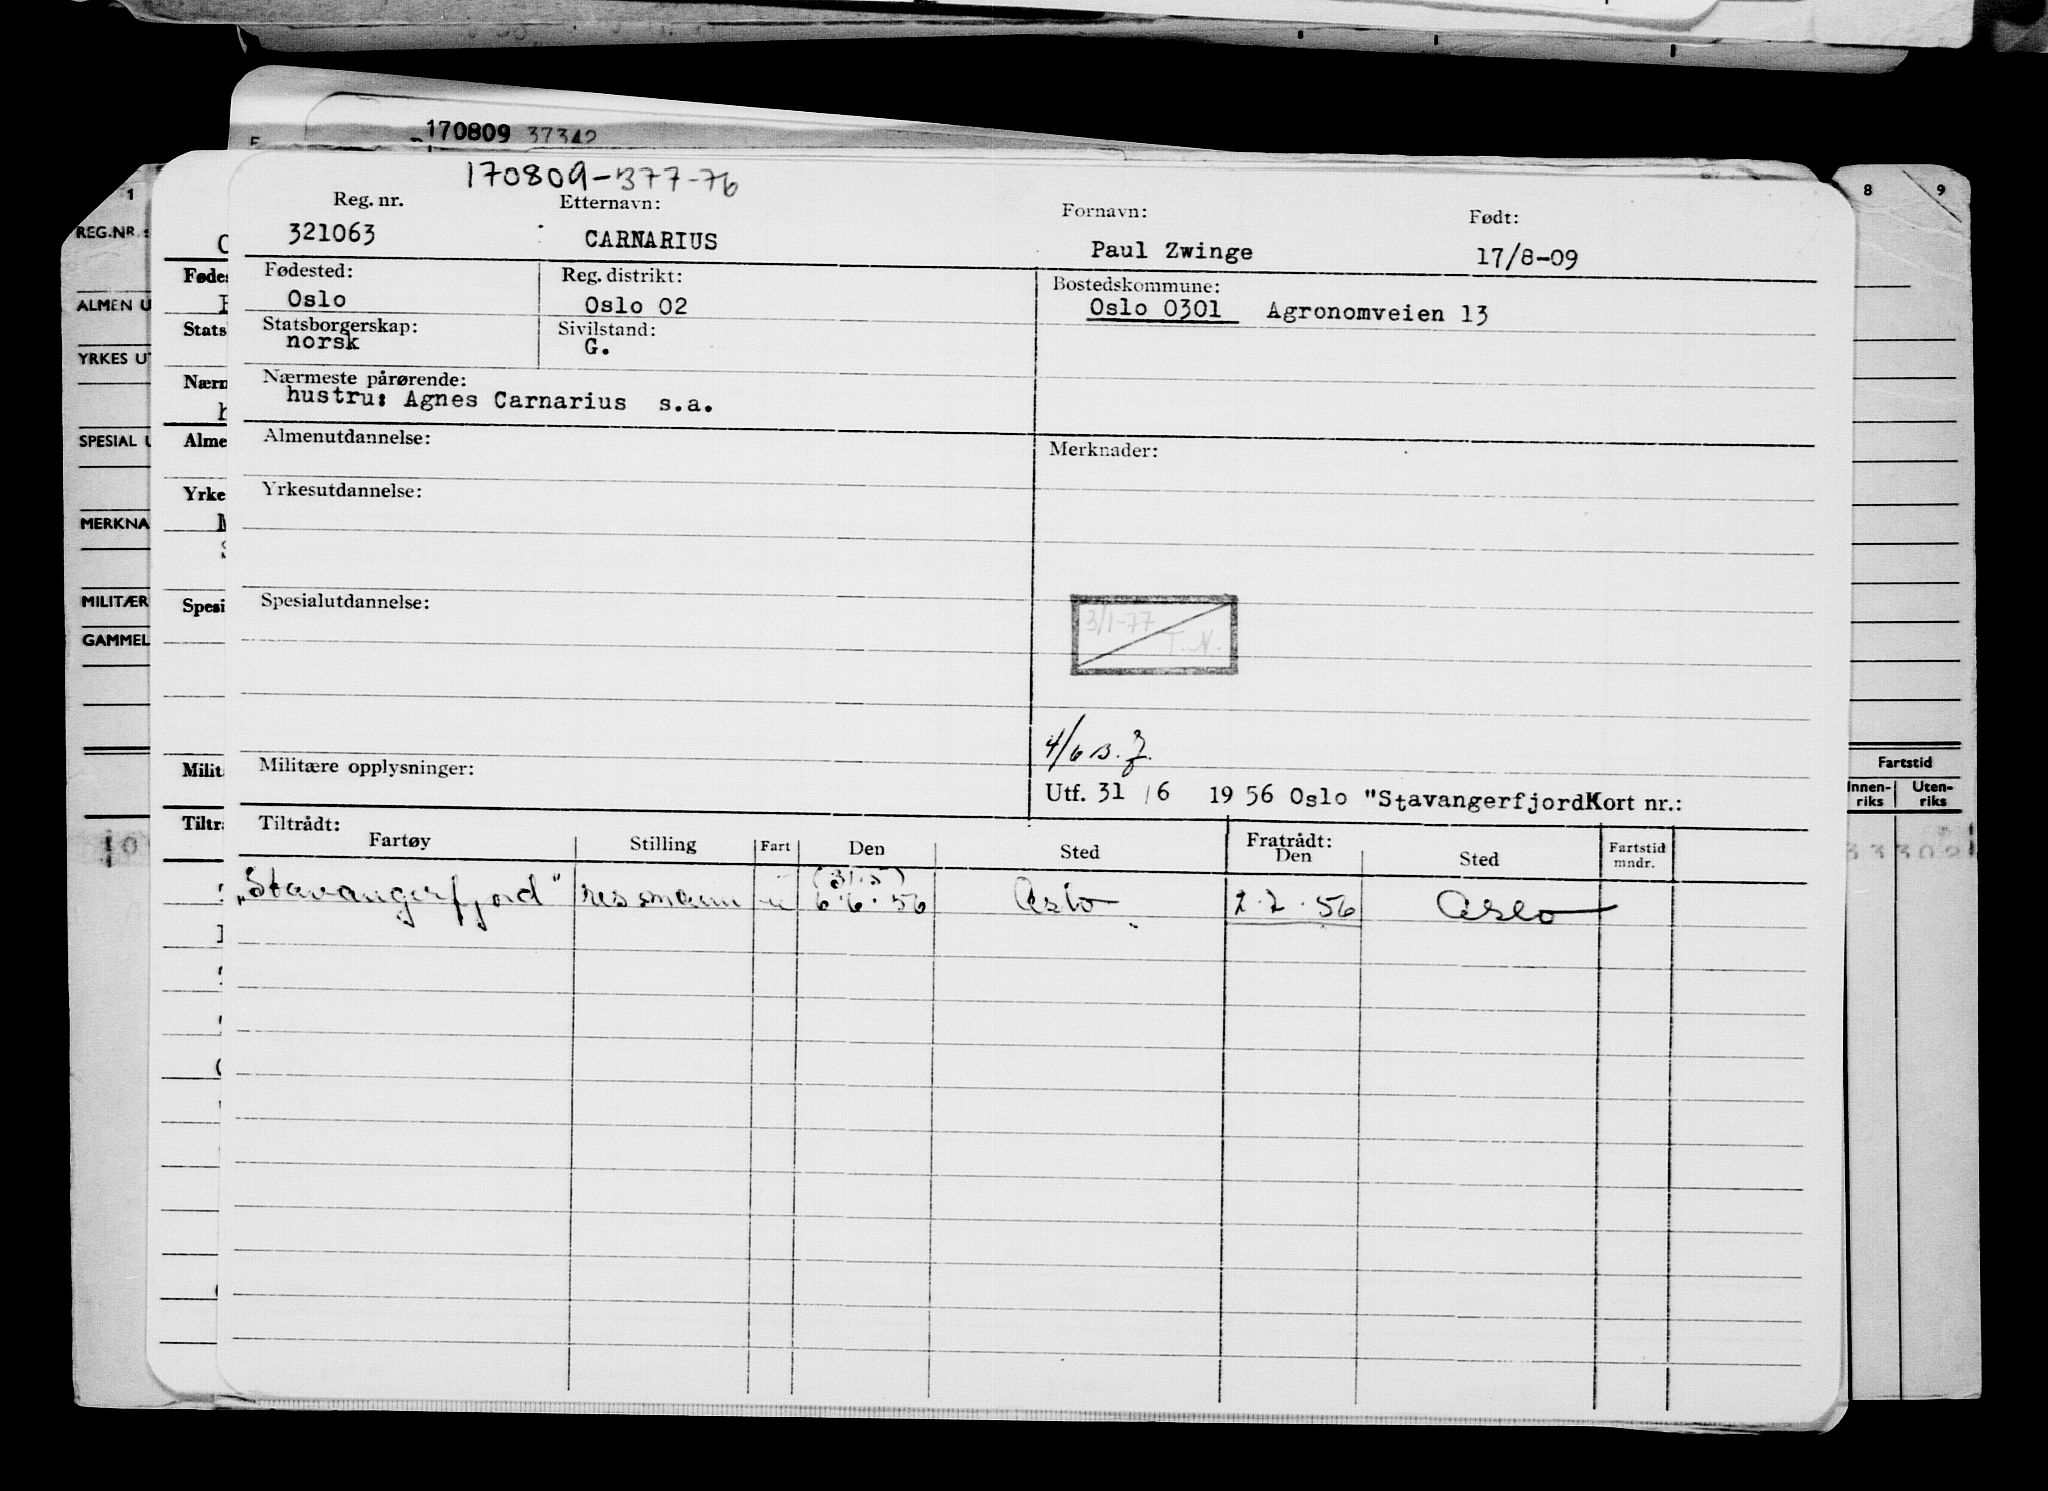 170809 37342
1
8 9
REG.NR.:
Fødes
ALMEN U
Stats
YRKES UT
Nærm
SPESIAL U
Alme
Yrke
MERKNA
MILITÆR
Spesi
GAMMEL
Milit
Tiltr
Fartstid
Innen-riks Uten-riks
170809-377-76
Reg. nr. Etternavn: Fornavn: Født:
321063 CARNARIUS Paul Zwinge 17/8-09
Fødested: Reg. distrikt: Bostedskommune:
Oslo Oslo 02 Oslo 0301 Agronomveien 13
Statsborgerskap: Sivilstand:
norsk G.
Nærmeste pårørende:
hustru: Agnes Carnarius s.a.
Almenutdannelse: Merknader:
Yrkesutdannelse:
Spesialutdannelse:
3/1-77
T.N.
4/6
Militære opplysninger:
Utf. 31 / 6 19 56 Oslo "StavangerfjordKort nr.:
Tiltrådt: Fratrådt:
Fartøy Stilling Fart Den Sted Den Sted Fartstid mndr.
(31.5)
"Stavangerfjord" ressmann u 6.6.56 Oslo 2.7.56 Oslo